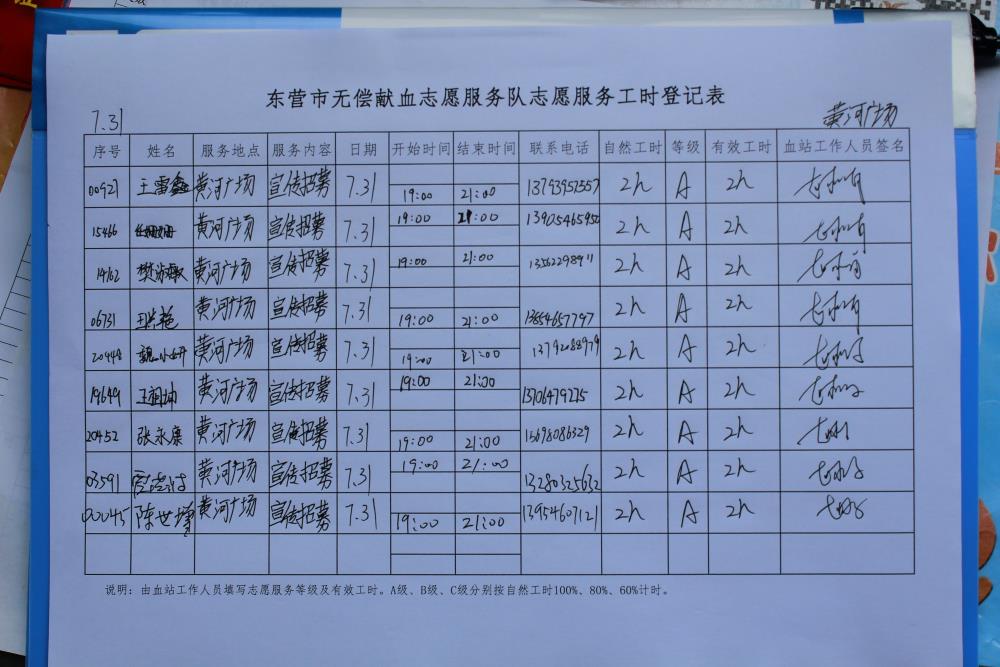 东营市无偿献血志愿服务队志愿服务工时登记表
7.31 黄河广场
序号 姓名 服务地点 服务内容 日期 开始时间 结束时间 联系电话 自然工时 等级 有效工时 血站工作人员签名
00921 王雷鑫 黄河广场 宣传招募 7.31 19:00 21:00 13793952557 2h A 2h
15466 黄河广场 宣传招募 7.31 19:00 21:00 2h A 2h
14162 黄河广场 宣传招募 7.31 19:00 21:00 13562298911 2h A 2h
06731 黄河广场 宣传招募 7.31 19:00 21:00 13854657797 2h A 2h
20448 魏小妍 黄河广场 宣传招募 7.31 19:00 21:00 13792088979 2h A 2h
19649 黄河广场 宣传招募 7.31 19:00 21:00 13706479275 2h A 2h
20452 张永康 黄河广场 宣传招募 7.31 19:00 21:00 15698086329 2h A 2h
03591 黄河广场 宣传招募 7.31 19:00 21:00 13280325632 2h A 2h
00045 陈世增 黄河广场 宣传招募 7.31 19:00 21:00 13954607121 2h A 2h
说明：由血站工作人员填写志愿服务等级及有效工时。A级、B级、C级分别按自然工时100%、80%、60%计时。